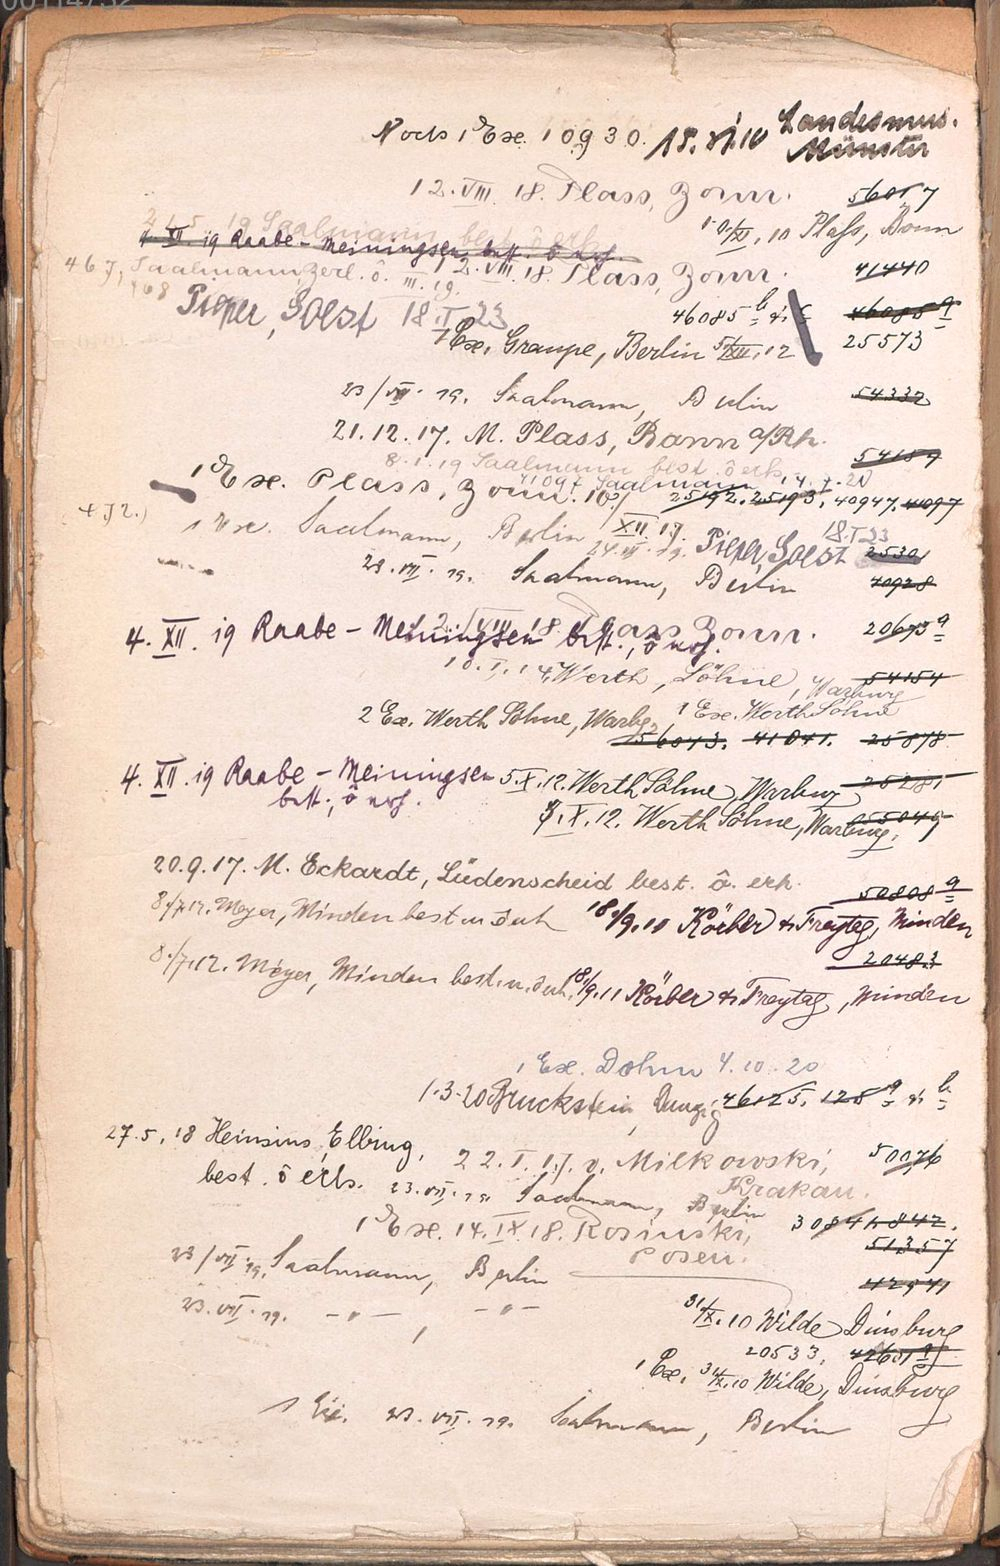 Noch 1 Ex. 10930. 18.XI.10 Landesmus.
Münster
12.VIII.18. Plass, Zonn. 56017
10/XI.10 Plass, Bonn
215 19 Saalmann best. ô erh.
4. XII. 19 Raabe - Meiningsen, best. ô erh.
467, Saalmann Zerl. ô. III. 19. 12.VIII.18. Plass, Zonn. 41440
468
Pieper, Soest 18.I.23 46085 b & c 46085 a
1 Ex. Graupe, Berlin 5/XII.12 25573
23/VII. 19. Saalmann, Berlin 54332
21.12.17. M. Plass, Bonn a/Rh.
8.1.19 Saalmann best. ô erh. 54159
41097 Saalmann 14.7.20
1 Ex. Plass, Zonn. 25192. 25193, 40947, 41097
XII 17.
1 Ex. Saalmann, Berlin Pieper, Soest 18.I.23 2530
23. VII. 19. Saalmann, Berlin 40928
4. XII. 19 Raabe - Meiningsen best., ô erh. 12.VIII.18. Plass Zonn. 20673 a
10.I.14 Werth, Söhne, Warburg 54154
2 Ex. Werth Söhne, Warbg. 1 Ex. Werth Söhne
56043. 41041. 25878
4. XII. 19 Raabe - Meiningsen 5.X.12. Werth Söhne, Warburg 25281
best., ô erh.
7.X.12. Werth Söhne, Warburg, 55049
20.9.17. M. Eckardt, Lüdenscheid best. ô. erh.
50808 a
8./7.12. Meyer, Minden best. u. ô erh. 18/9.10 Körber & Freytag, Minden
20483
8./7.12. Meyer, Minden best. u. ô erh. 18/9.11 Körber & Freytag, Minden
1 Ex. Dohm 4.10.20
1.3.20 Bruckstein, Danzig 46125. 128 a & b
27.5.18 Heinsius, Elbing, 22.I.17. v. Milkowski, 50076
best. ô erh. Krakau.
23.VII.19. Saalmann, Berlin
1 Ex. 14.IX.18. Rosinski, 30841. 842.
Posen. 51357
23/VII. 19. Saalmann, Berlin 42541
23. VII. 19. -"- -"- 31/X.10 Wilde Duisburg
20533, 42601 a
1 Ex. 31/X.10 Wilde, Duisburg
1 Ex. 23. VII. 19. Saalmann, Berlin